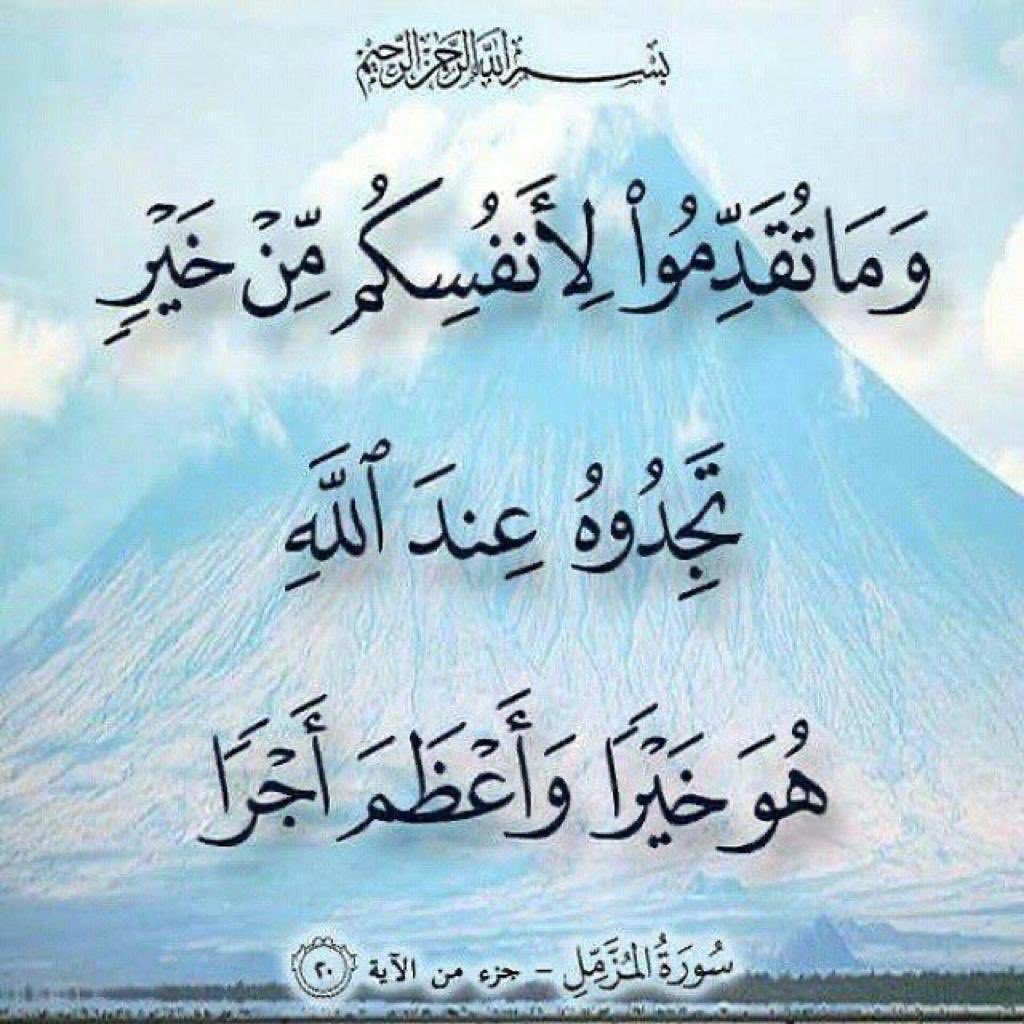 بسم الله الرحمن الرحيم
وَمَا تُقَدِّمُوا۟ لِأَنفُسِكُم مِّنْ خَيْرٍ
تَجِدُوهُ عِندَ ٱللَّهِ
هُوَ خَيْرًا وَأَعْظَمَ أَجْرًا
سُورَةُ المُزَّمِّلِ - جزء من الآية ٢٠